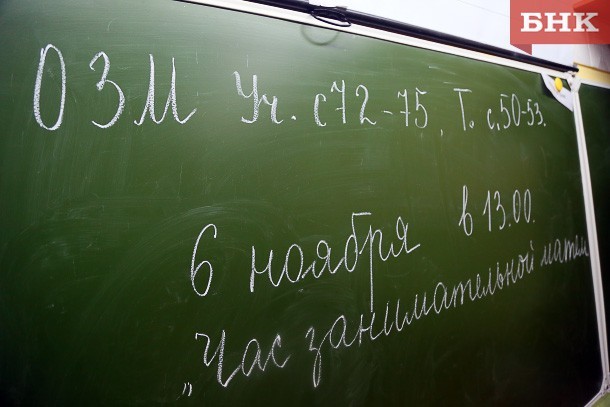 БНК
ОЗМ Уч. с 72-75, Т. с. 50-53.
6 ноября в 13.00.
„Час занимательной матем